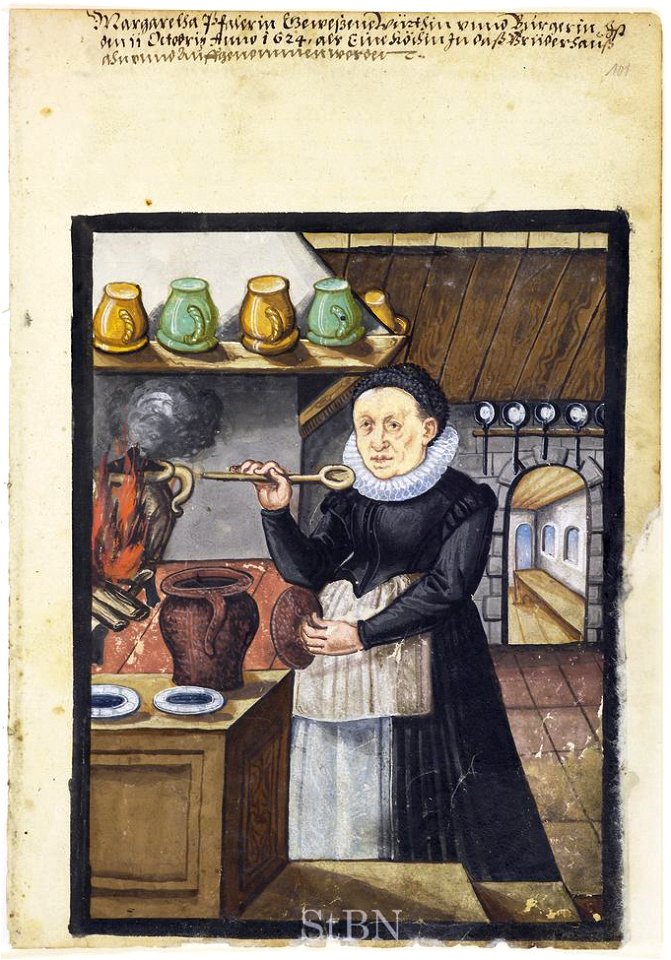 Margaretha Pfauerin Geweßene Würthin vnnd Bürgerin, Ist
den 11 Octobris Anno 1624, als Eine Köchin In daß Brüderhauß
ahn vnnd Auffgenommen worden
101
StBN